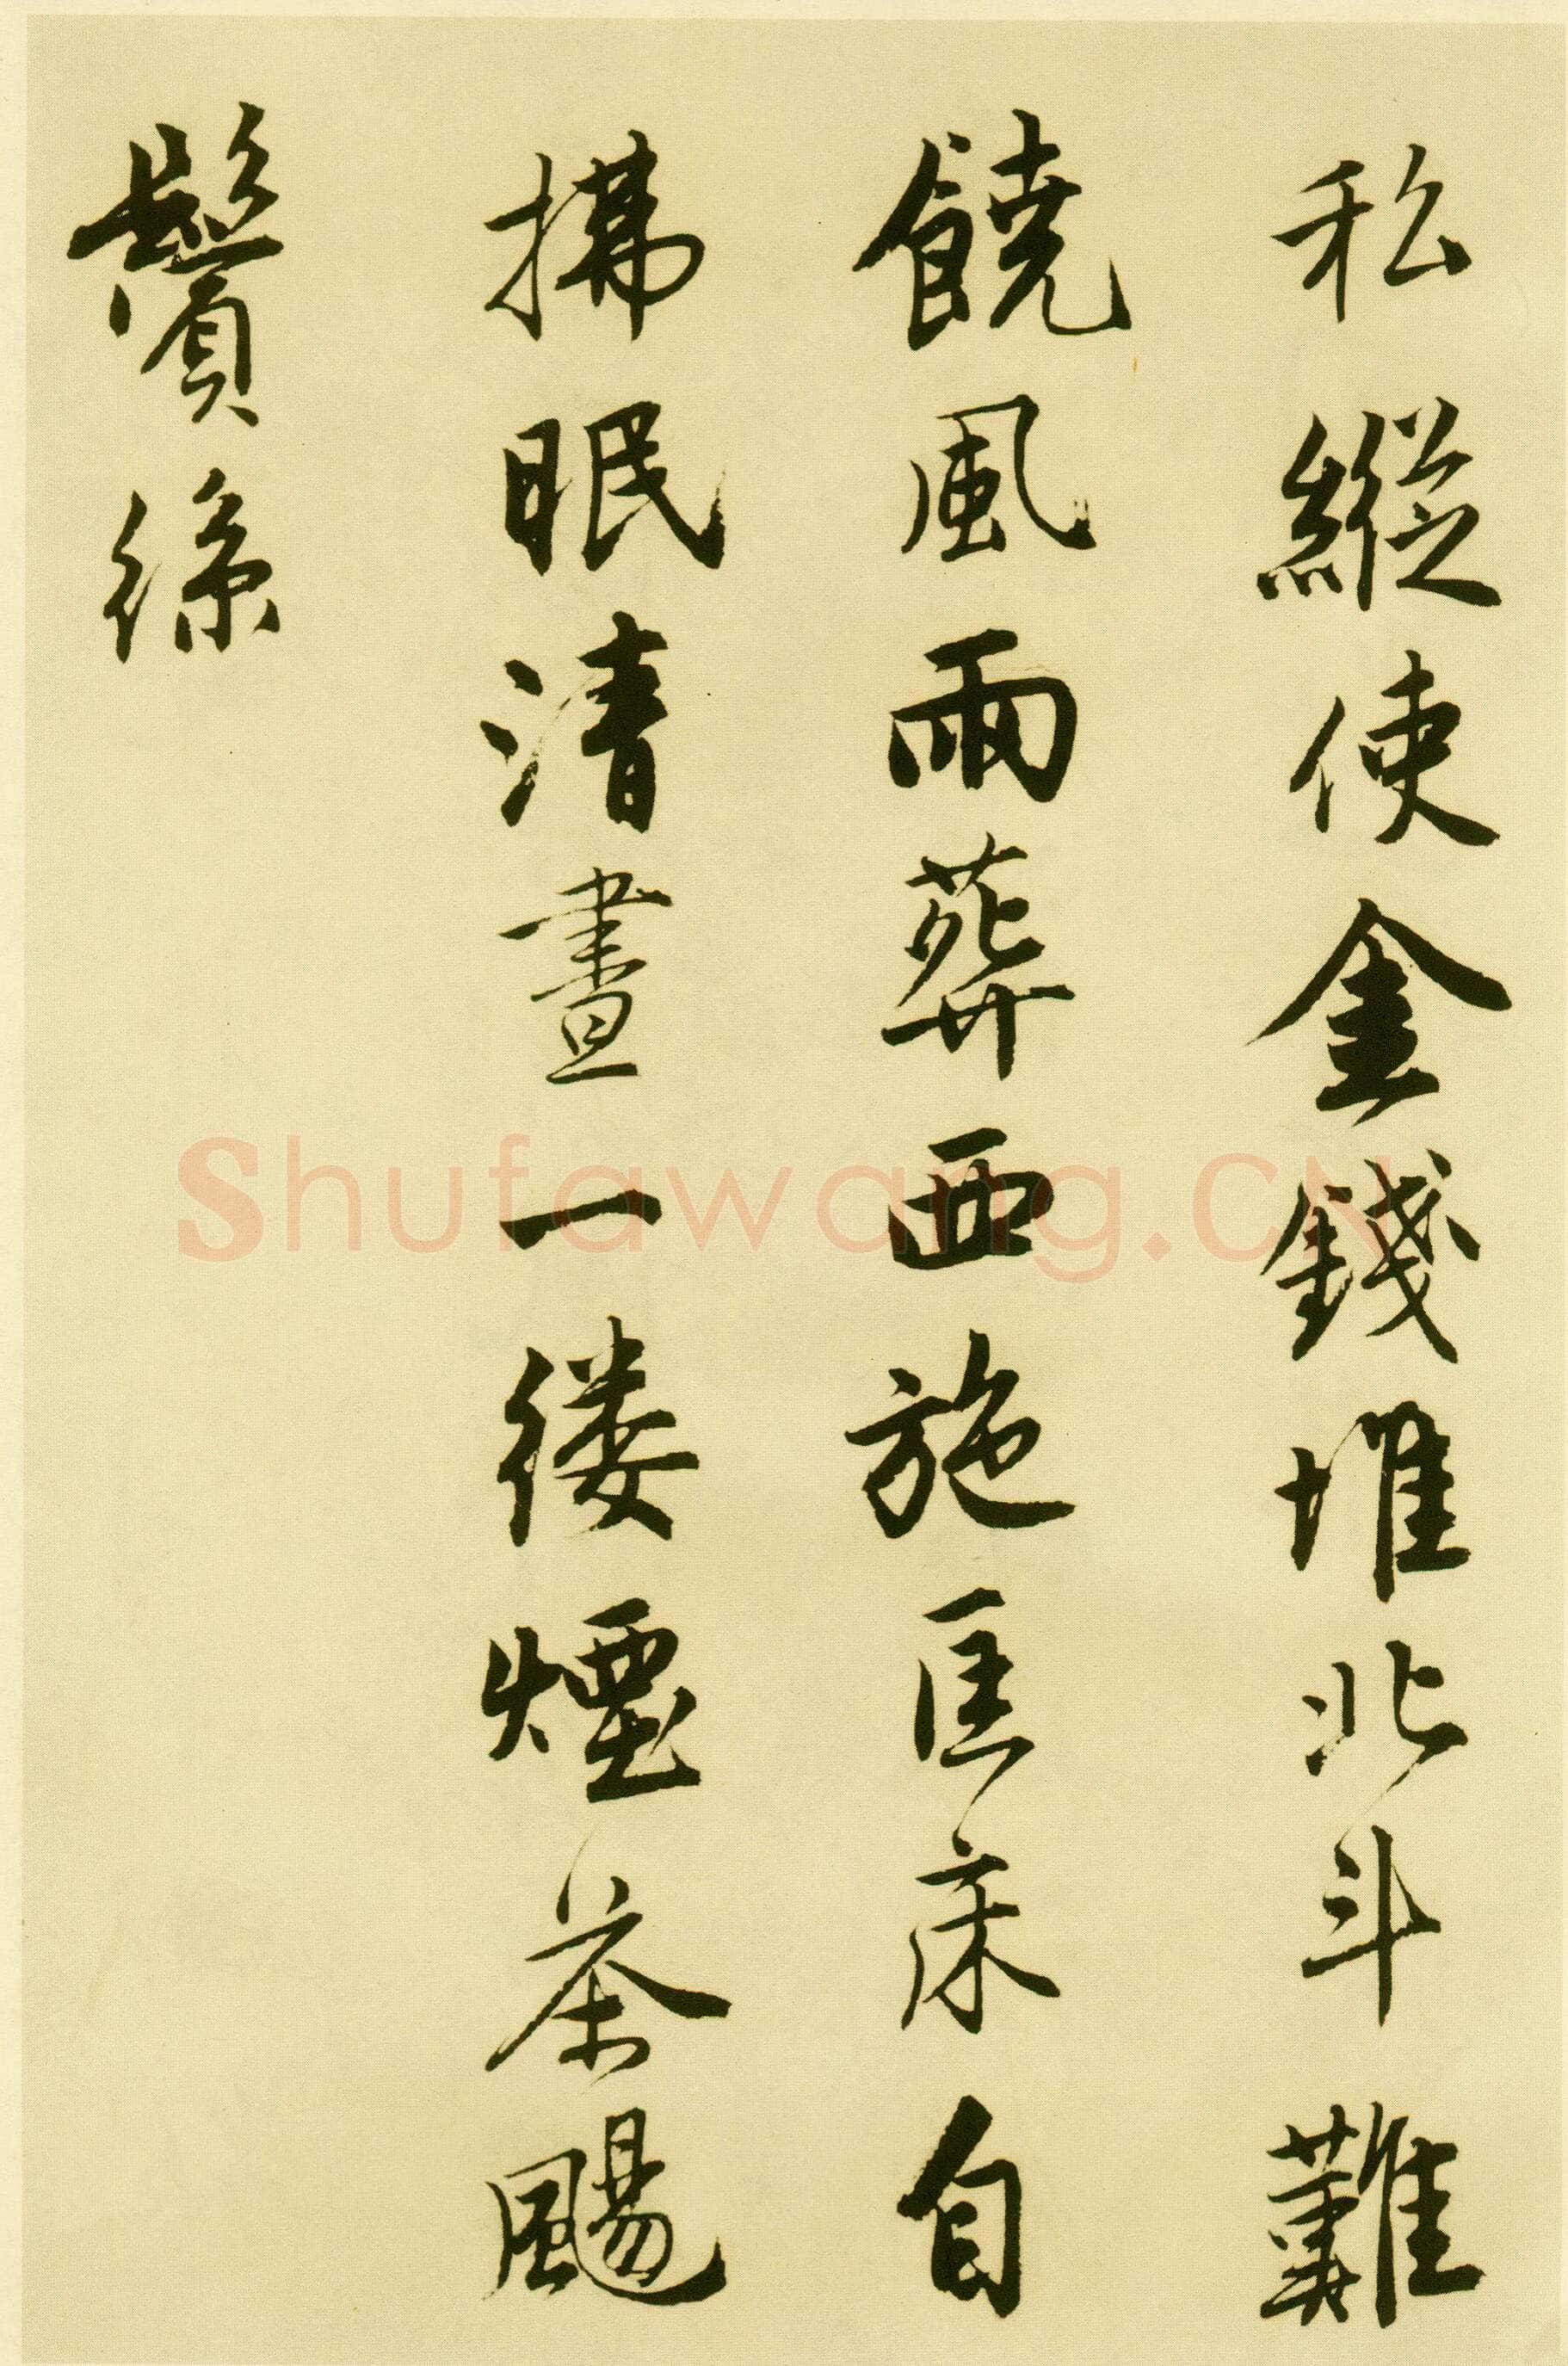 私縱使金錢堆北斗難
饒風雨葬西施匡床自
拂眠清晝一縷煙茶颺
鬢絲
Shufawang.CN